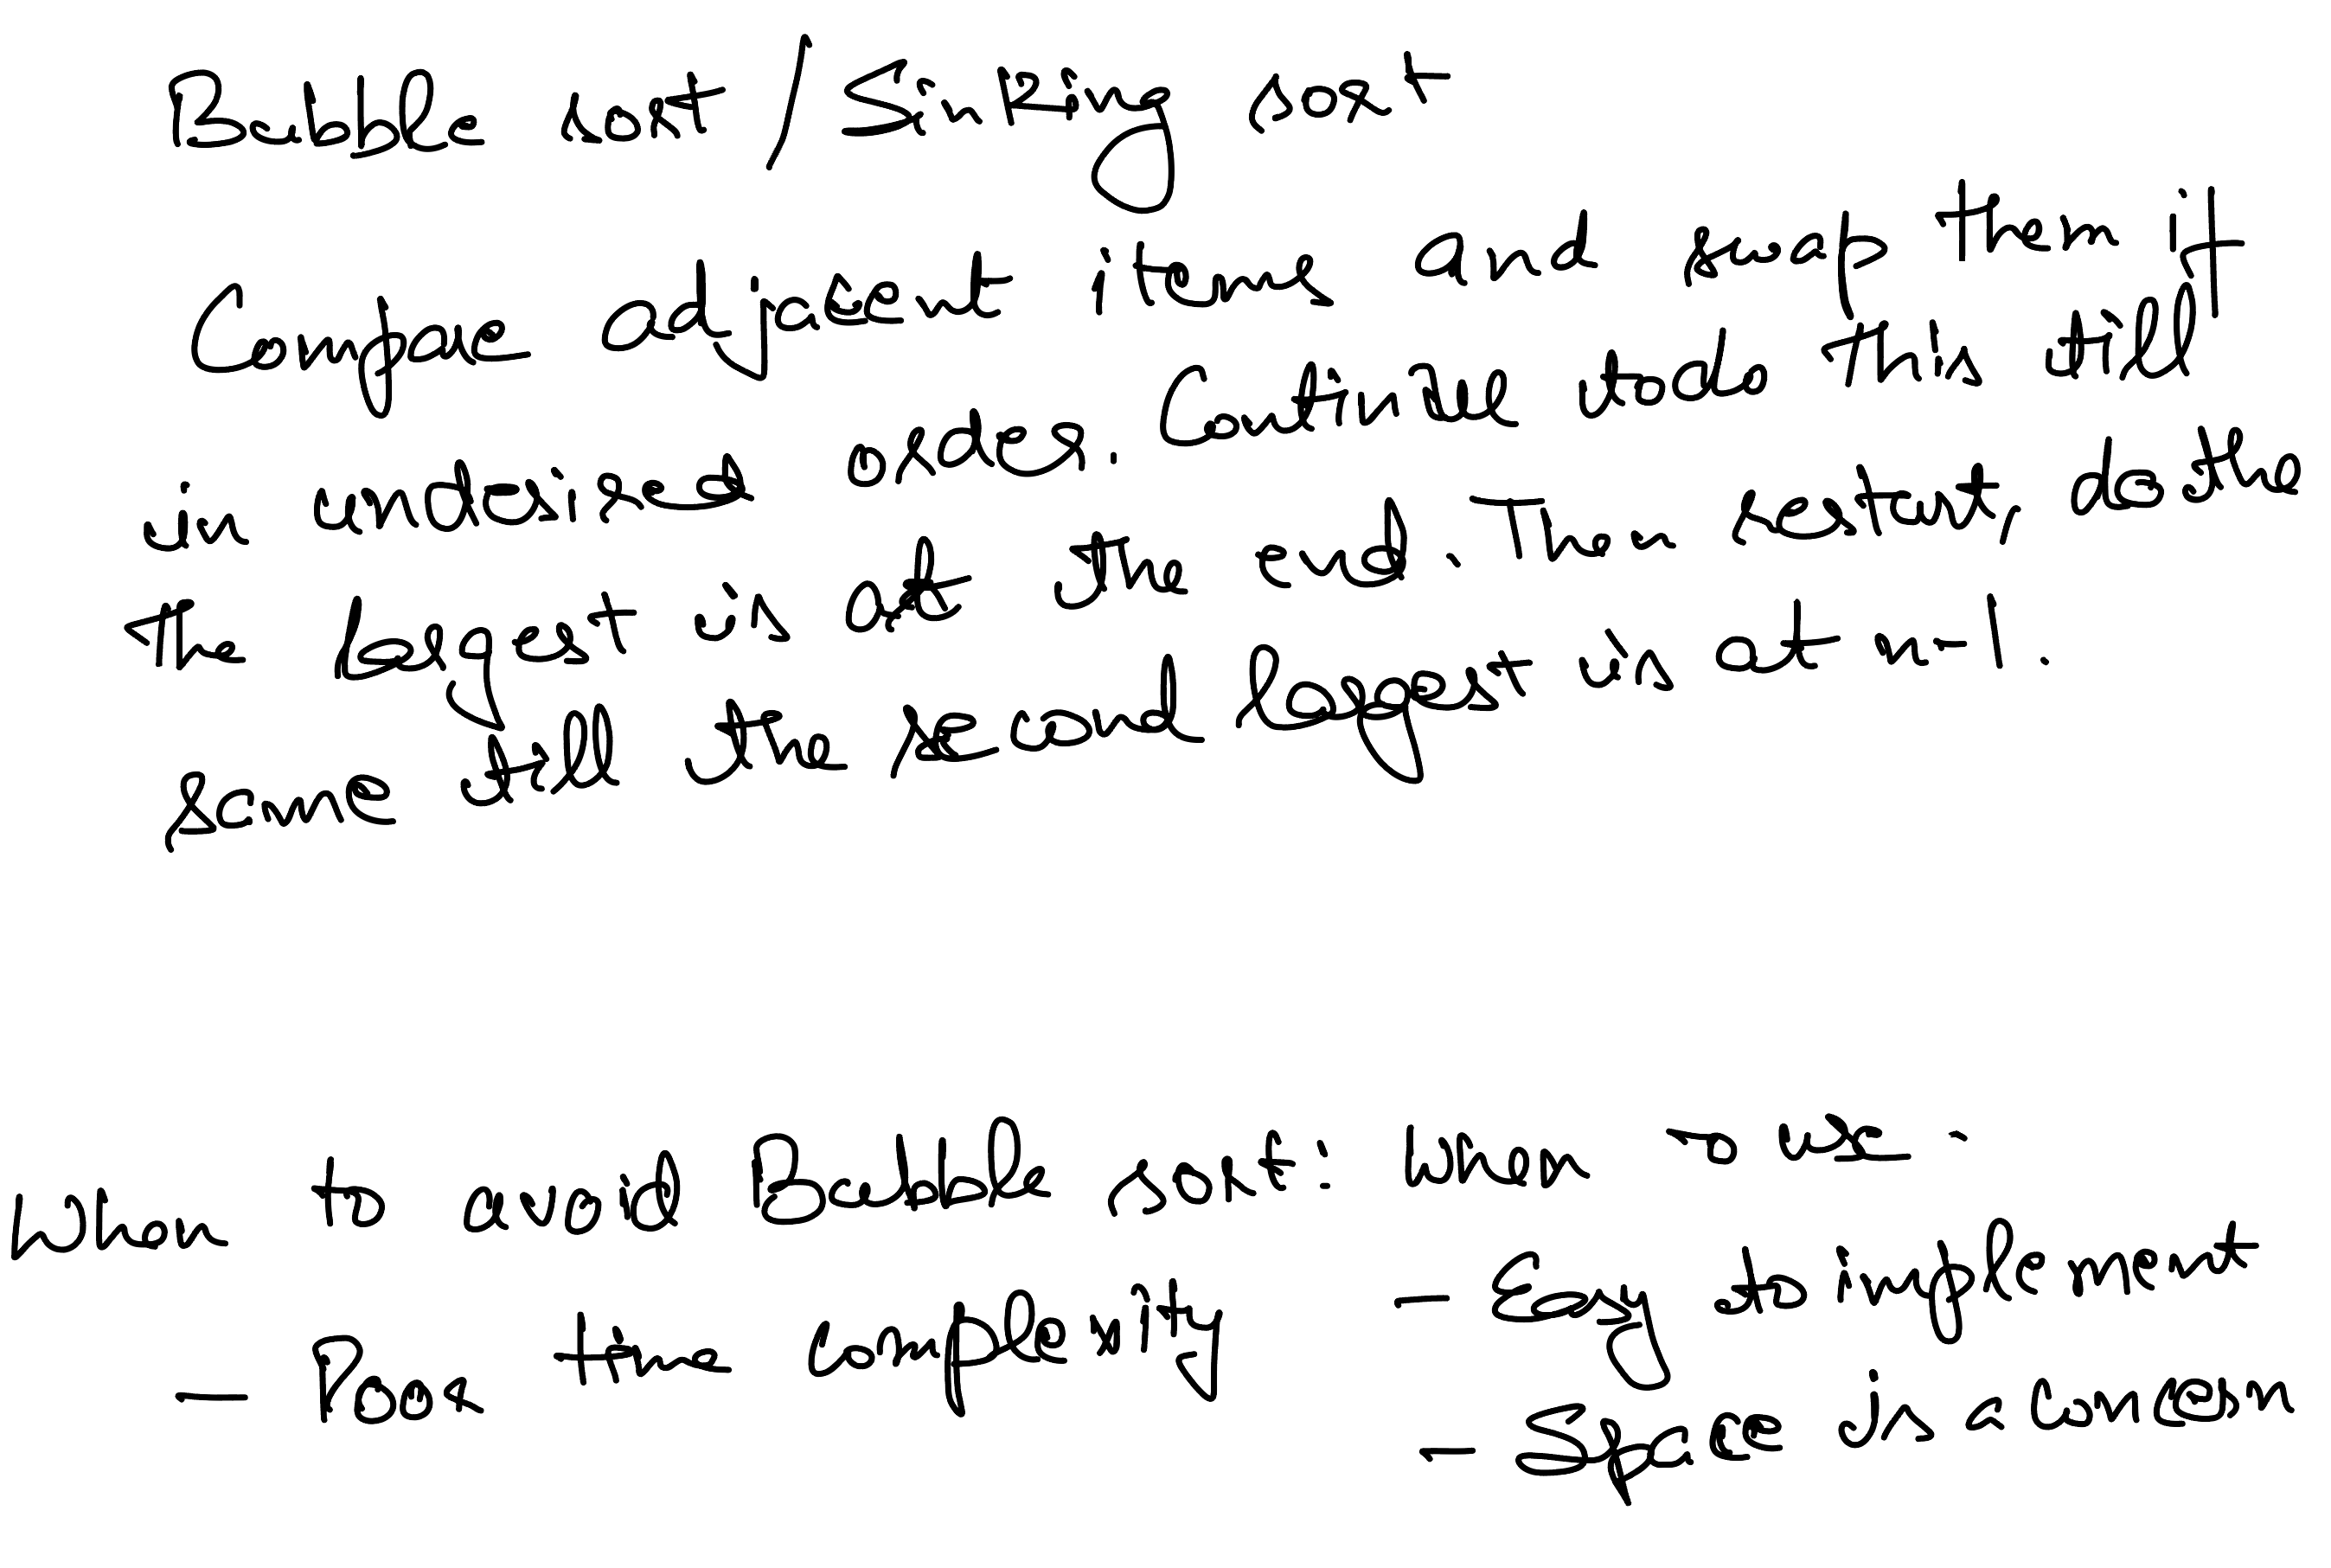 Bubble sort / Sinking sort
Compae adjacent items and swap them if
in undesired order. Continue to do this till
The largest is at the end. Then restart, do the
same till the second largest is at n-1.
When to avoid Bubble sort: When to use -
- Poor time complexity - Easy to implement
- Space is a concern